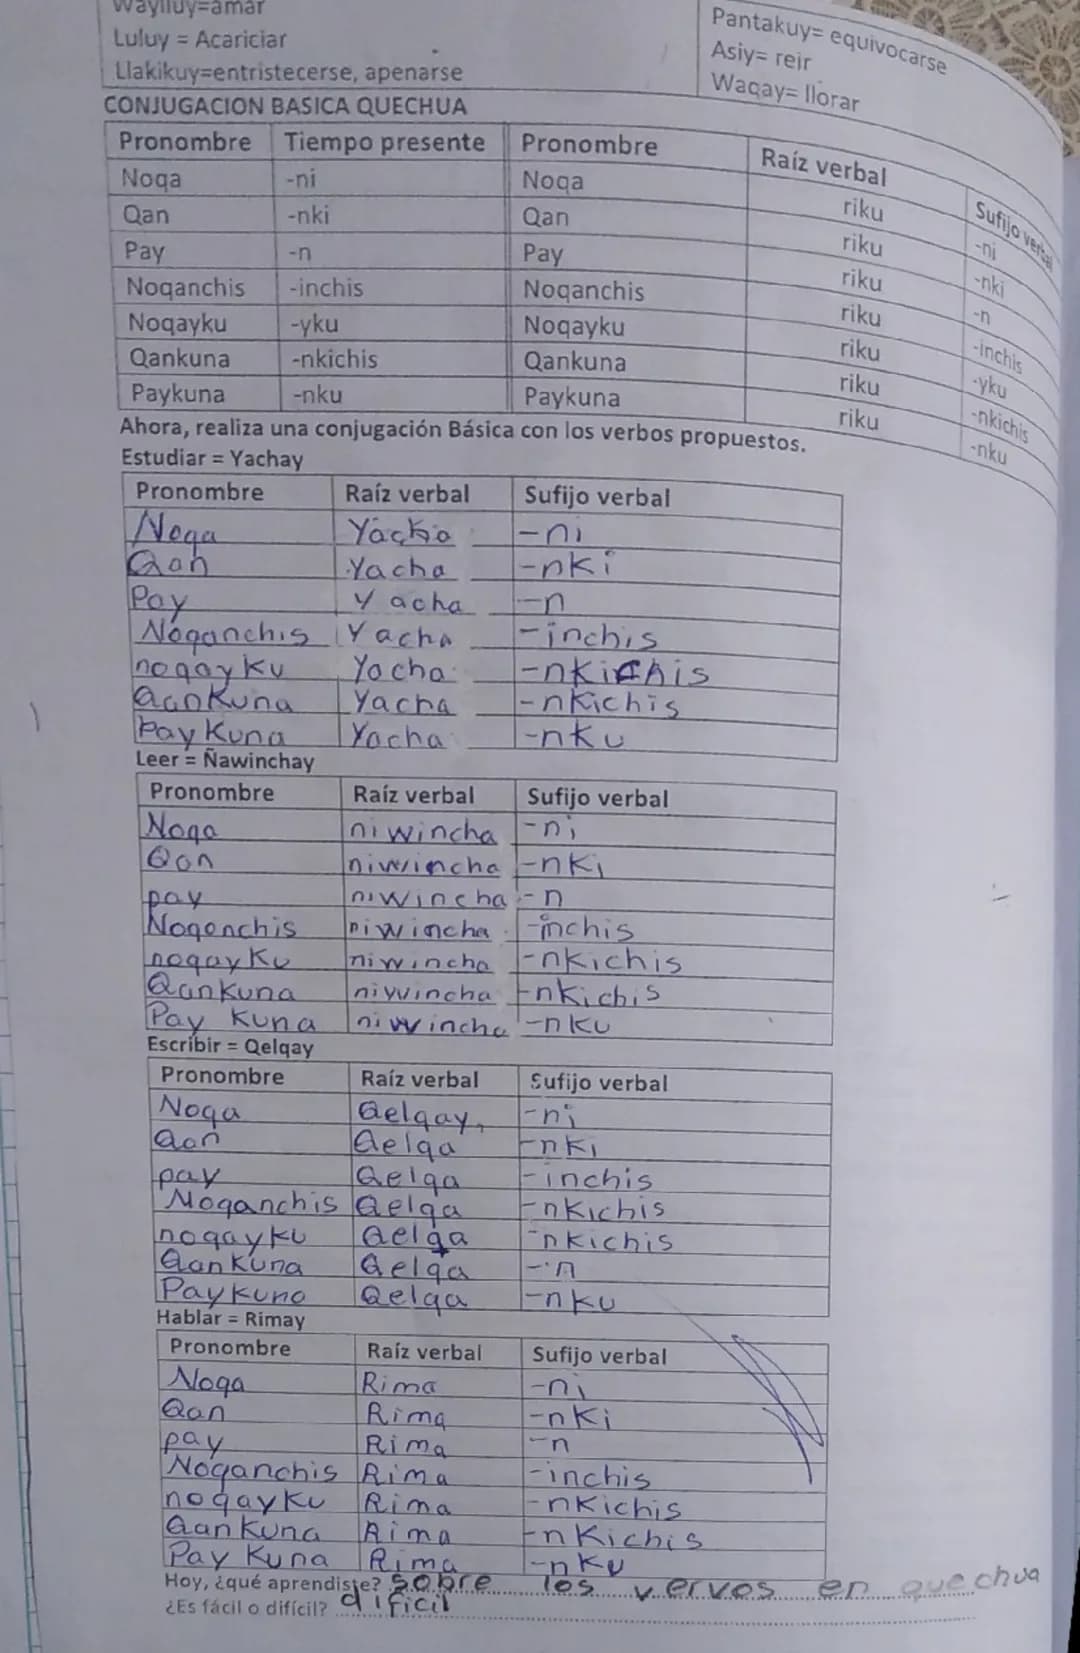 Waylluy=amar
Luluy = Acariciar
Llakikuy=entristecerse, apenarse
Pantakuy= equivocarse
Asiy= reir
Waqay= llorar
CONJUGACION BASICA QUECHUA
Pronombre Tiempo presente Pronombre Raíz verbal Sufijo verbal
Noqa -ni Noqa riku -ni
Qan -nki Qan riku -nki
Pay -n Pay riku -n
Noqanchis -inchis Noqanchis riku -inchis
Noqayku -yku Noqayku riku -yku
Qankuna -nkichis Qankuna riku -nkichis
Paykuna -nku Paykuna riku -nku
Ahora, realiza una conjugación Básica con los verbos propuestos.
Estudiar = Yachay
Pronombre Raíz verbal Sufijo verbal
Noqa Yacha -ni
Qan Yacha -nki
Pay Yacha -n
Noqanchis Yacha -inchis
noqayku Yacha -nkichis
Qankuna Yacha -nkichis
Paykuna Yacha -nku
Leer = Ñawinchay
Pronombre Raíz verbal Sufijo verbal
Noqa niwincha -ni
Qan niwincha -nki
pay niwincha -n
Noqanchis niwincha -inchis
noqayku niwincha -nkichis
Qankuna niwincha -nkichis
Pay kuna niwincha -nku
Escribir = Qelqay
Pronombre Raíz verbal Sufijo verbal
Noqa Qelqay -ni
Qan Qelqa -nki
pay Qelqa -inchis
Noqanchis Qelqa -nkichis
noqayku Qelqa -nkichis
Qankuna Qelqa -n
Paykuna Qelqa -nku
Hablar = Rimay
Pronombre Raíz verbal Sufijo verbal
Noqa Rima -ni
Qan Rima -nki
pay Rima -n
Noqanchis Rima -inchis
noqayku Rima -nkichis
Qankuna Rima -nkichis
Pay Kuna Rima -nku
Hoy, ¿qué aprendiste? sobre los vervos en quechua
¿Es fácil o difícil? dificil